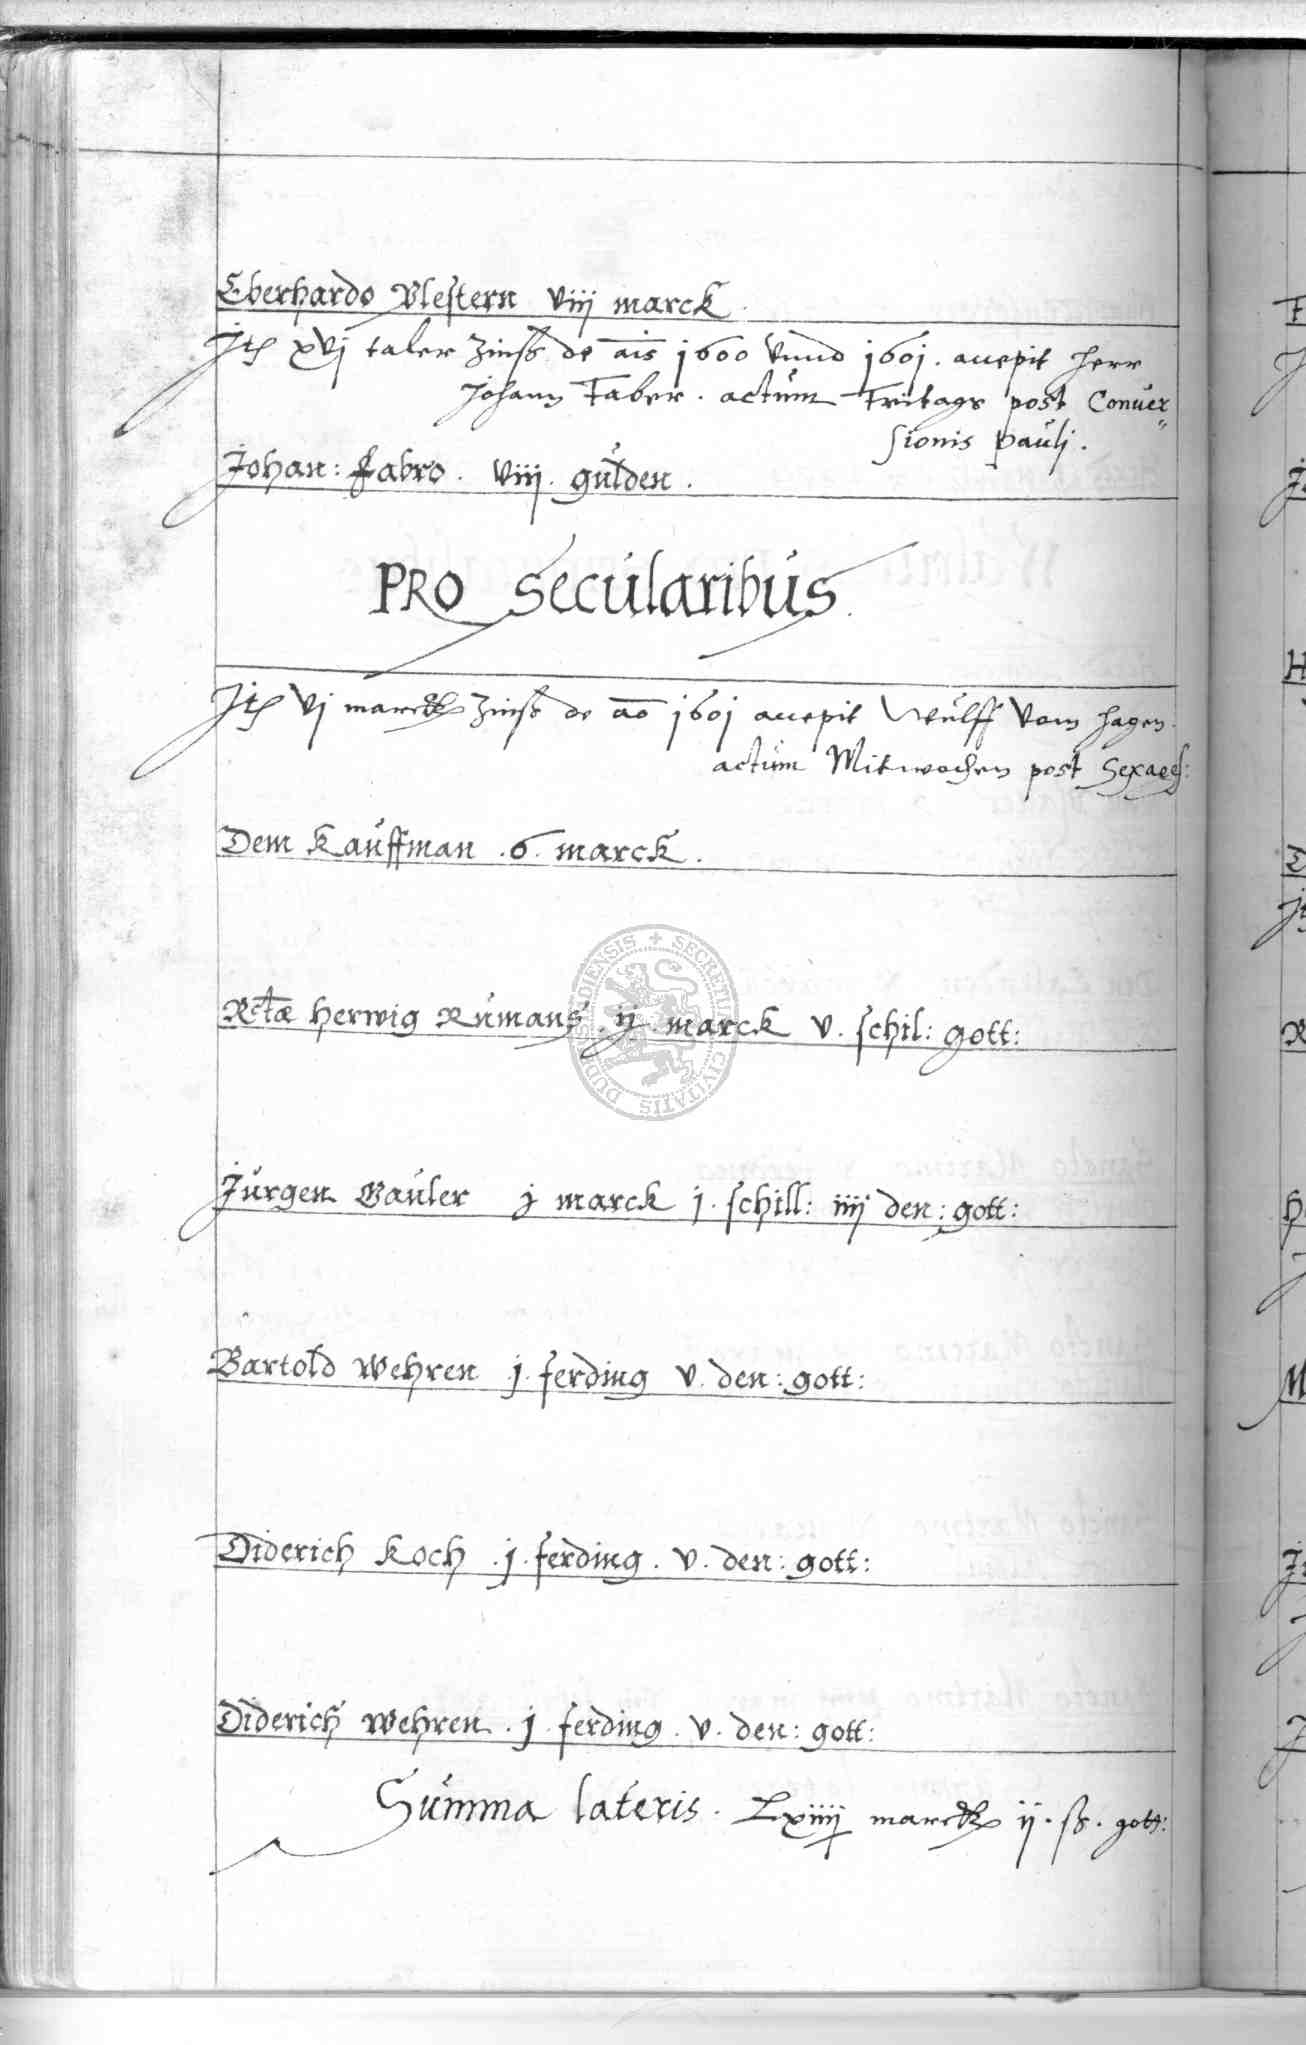 Eberhardo Vlestern viij marck.
Jt~ xvj taler Zinß de ais 1600 vnnd 1601. accepit Herr
Johann Faber. actum Fritags post Conuer=
sionis Pauli.
Johan: Fabro. viij. gulden.
PRO secularibus
Jt~ vj marck Zinß de ao 1601 accepit Wulff Vom Hagen.
actum Mitwochen post Sexag:
Dem Kauffman .6. marck.
Rctæ Herwig Rumans. ij. marck v. schil: gott:
SECRETUM CIVITATIS DUDERSTADIENSIS
Jurgen Bauler j marck j. schill: iiij den: gott:
Bartold Wehren .j. ferding v. den: gott:
Diderich Koch .j. ferding. v. den: gott:
Diderich Wehren .j. ferding. v. den: gott:
Summa lateris. Lxiiij marck ij. ß. gott: